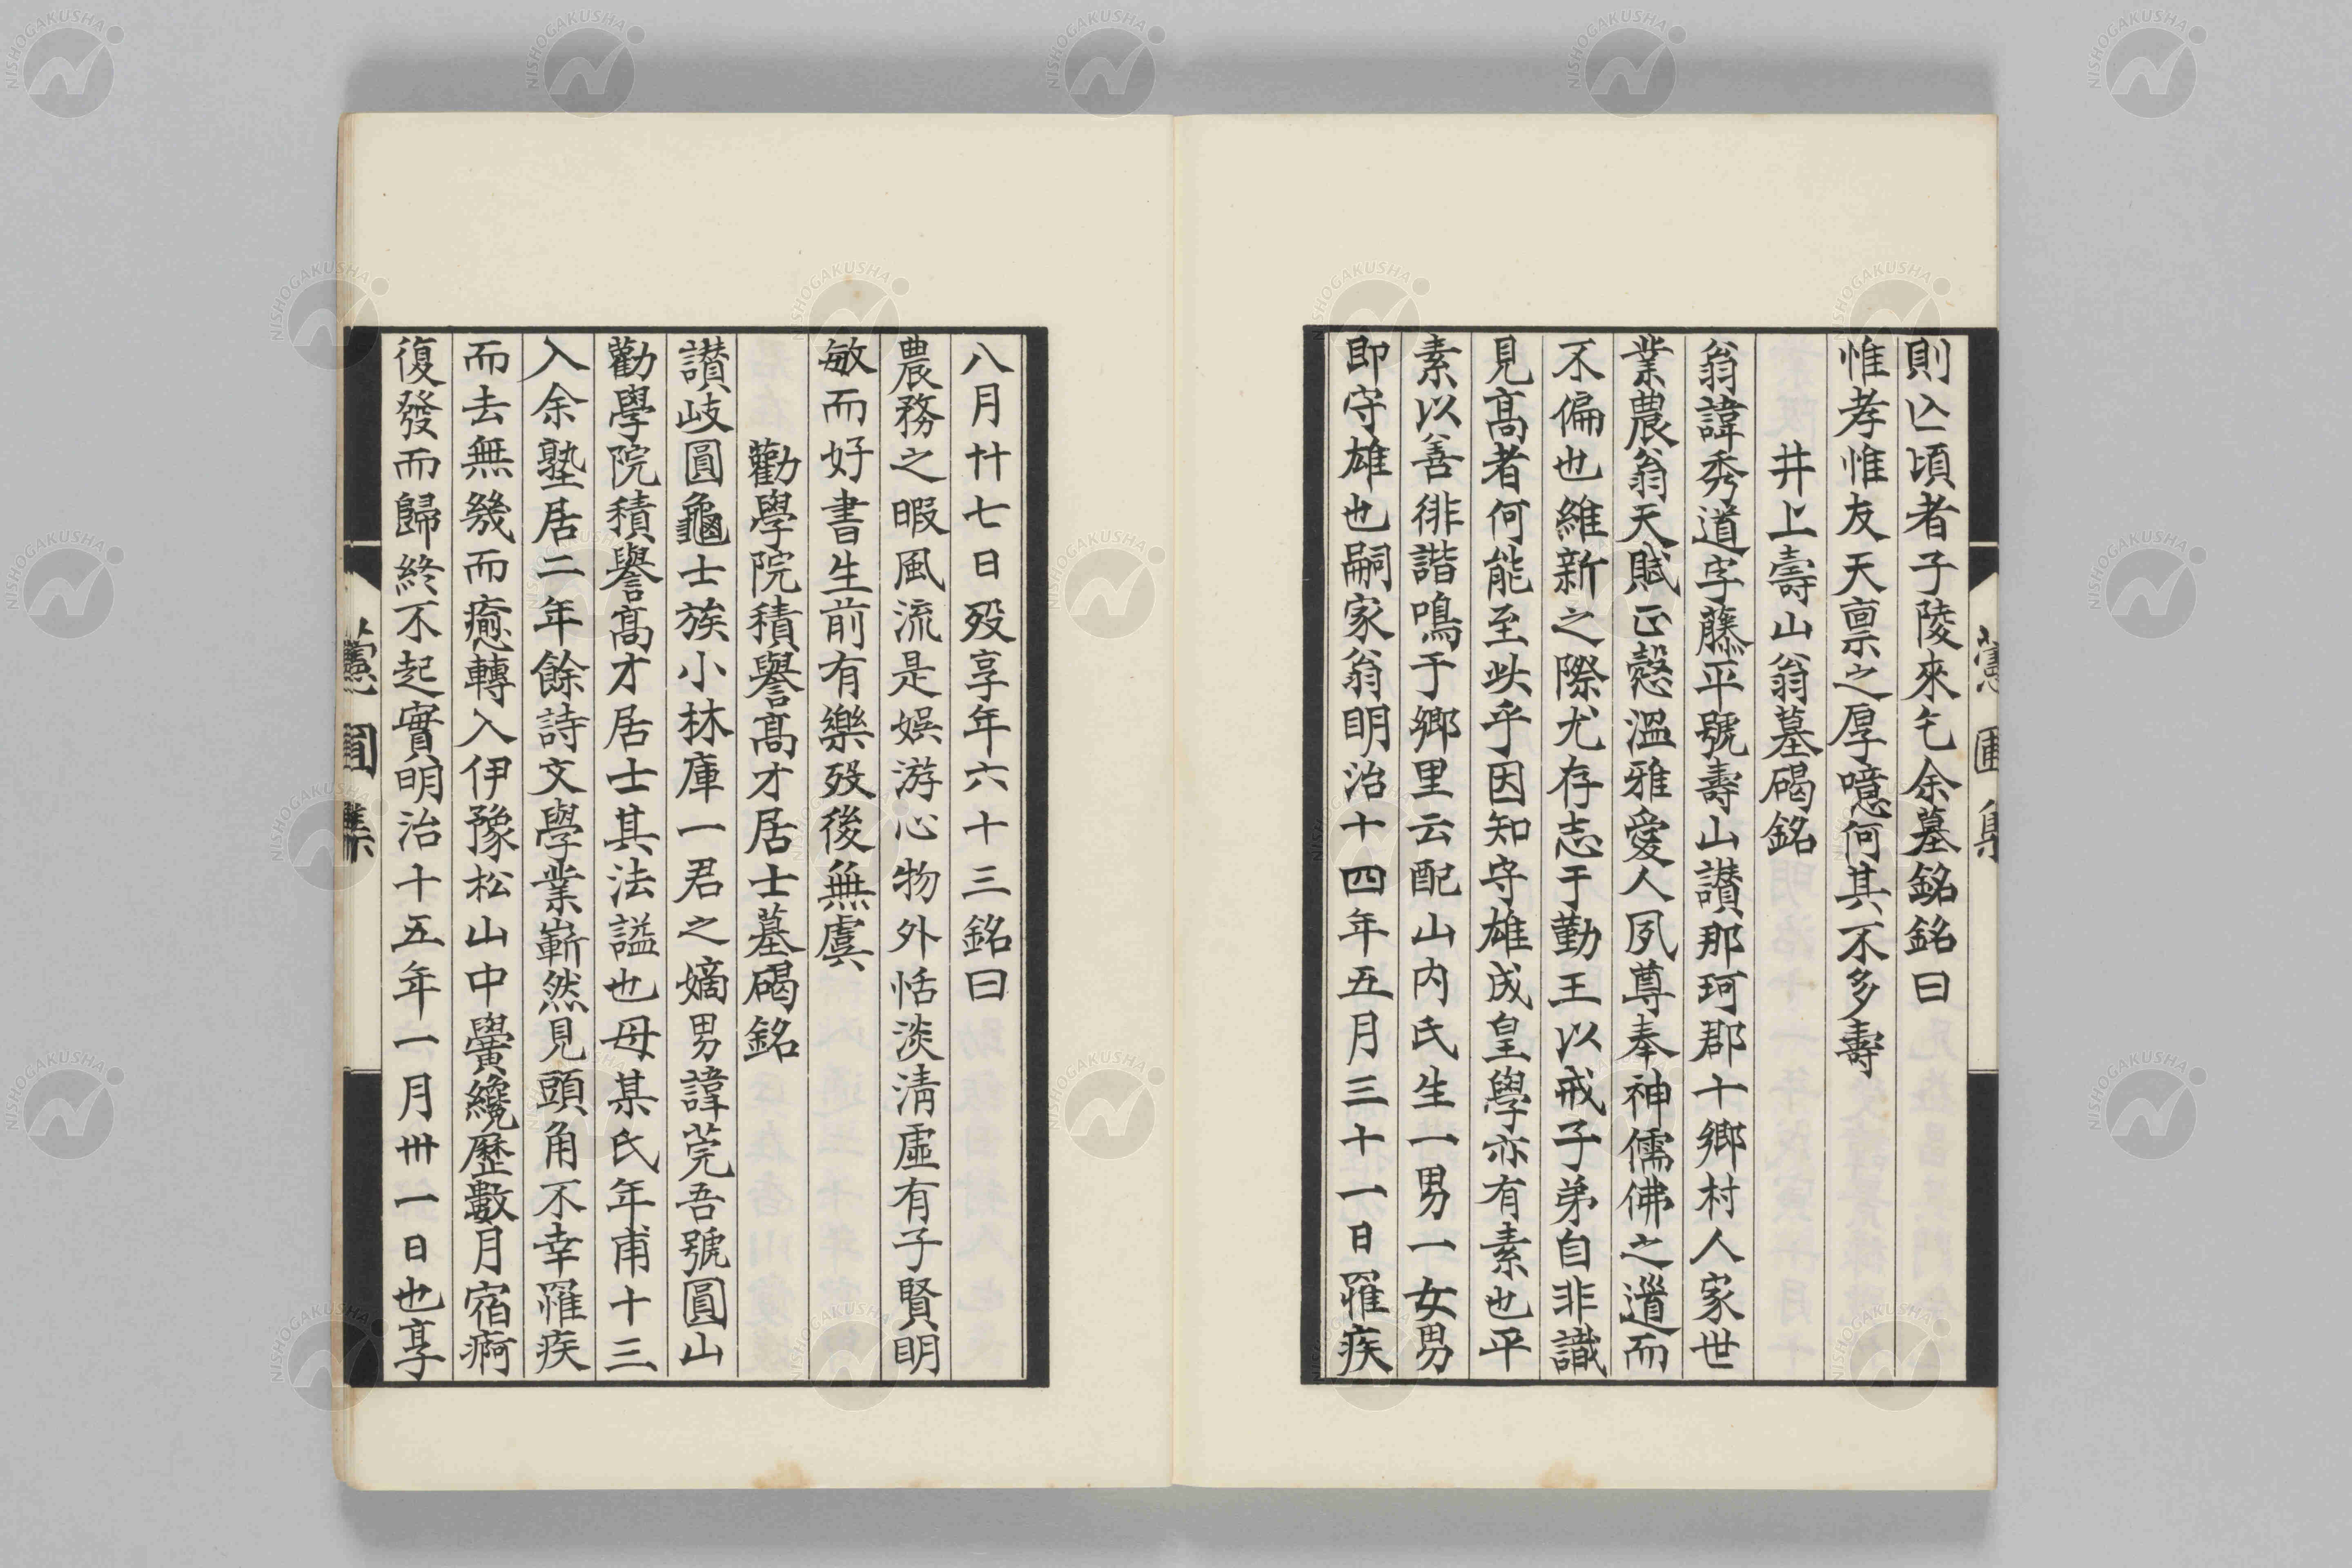 則亾頃者子陵來乞余墓銘銘曰
惟孝惟友天稟之厚噫何其不多壽
井上壽山翁墓碣銘
翁諱秀道字藤平號壽山讃那珂郡十鄉村人家世
業農翁天賦正慤溫雅愛人夙尊奉神儒佛之道而
不偏也維新之際尤存志于勤王以戒子弟自非識
見髙者何能至此乎因知守雄成皇學亦有素也平
素以善徘諧鳴于鄉里云配山内氏生一男一女男
即守雄也嗣家翁明治十四年五月三十一日罹疾
八月廿七日歿享年六十三銘曰
農務之暇風流是娯游心物外恬淡淸虛有子賢明
敏而好書生前有樂歿後無虞
勸學院積譽髙才居士墓碣銘
讃岐圓龜士族小林庫一君之嫡男諱莞吾號圓山
勸學院積譽髙才居士其法謚也母某氏年甫十三
入余塾居二年餘詩文學業嶄然見頭角不幸罹疾
而去無幾而癒轉入伊豫松山中黌纔歷數月宿痾
復發而歸終不起實明治十五年一月卅一日也享
NISHOGAKUSHA